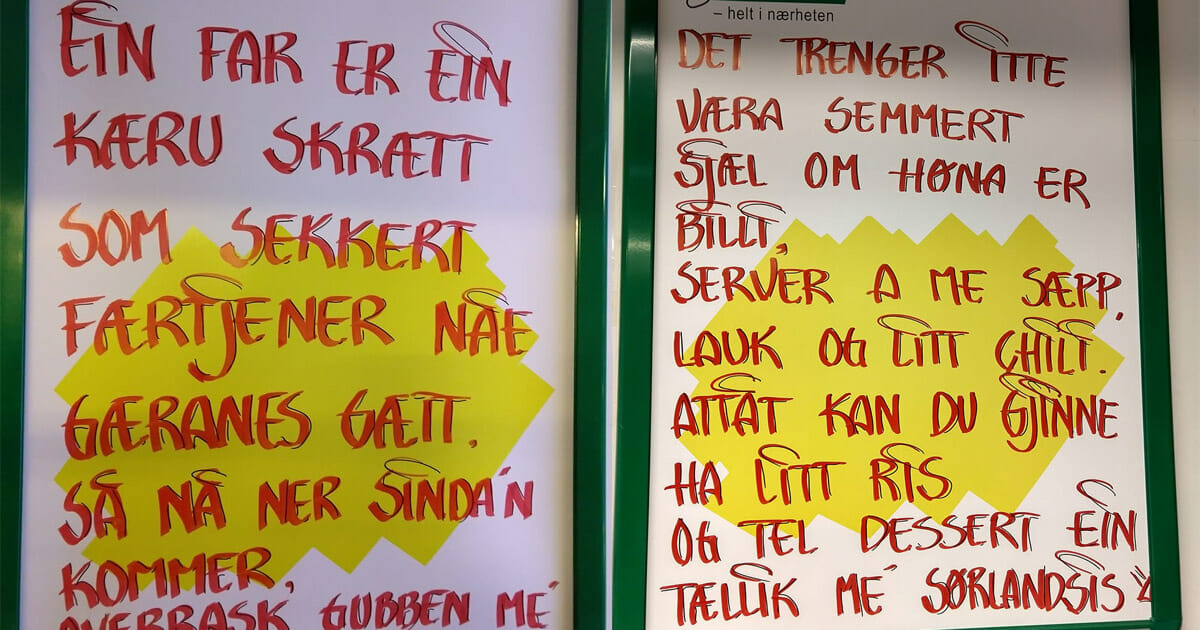 EIN FAR ER EIN
KÆRU SKRÆTT
SOM SEKKERT
FÆRTJENER NÅE
GÆRANES GÆTT.
SÅ NÅ NER SINDA'N
KOMMER,
OVERRASK GUBBEN ME
– helt i nærheten
DET TRENGER ITTE
VÆRA SEMMERT
SJÆL OM HØNA ER
BILLI,
SERVER A ME SÆPP,
LAUK OG LITT CHILI.
ATTÅT KAN DU GJINNE
HA LITT RIS
OG TEL DESSERT EIN
TÆLLIK ME SØRLANDSIS